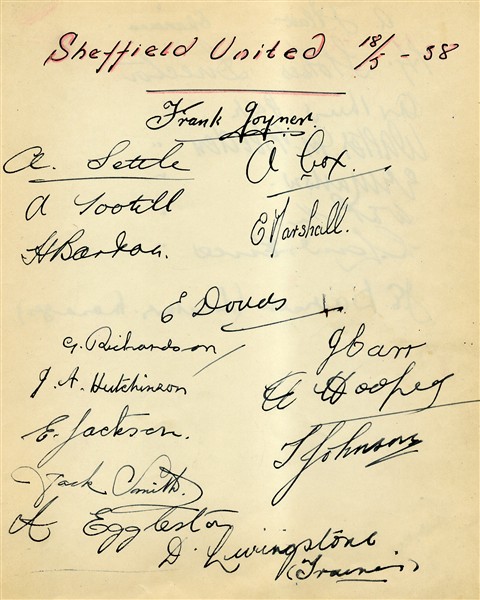 Sheffield United 18/5 - 38
Frank Joyner.
A. Settle
A Cox.
A Tootill
E Marshall.
H Barton.
E Douds
G. Richardson
J Carr
J. A. Hutchinson
A Hooper
E. Jackson.
T Johnson
Jack Smith.
A Eggleston
D. Livingstone
(Trainer)